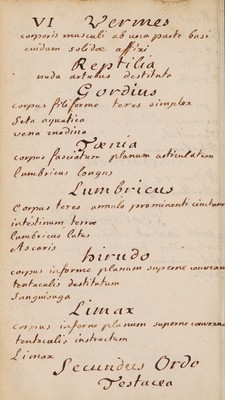 VI Vermes
corporis musculi ab una parte basi
cuidam solidæ affixi
Reptilia
nuda artubus destituta
Gordius
corpus filiforme teres simplex
Seta aquatica
vena medina
Tænia
corpus fasciatum planum articulatum
Lumbricus longus
Lumbricus
Corpus teres annulo prominenti cinctum
intestinum terræ
Lumbricus latus
Ascaris
hirudo
corpus informe planum superne convexum
tentaculis destitutum
Sanguisuga
Limax
corpus informe planum superne convexum
tentaculis instructum
Limax
Secundus Ordo
Testacea